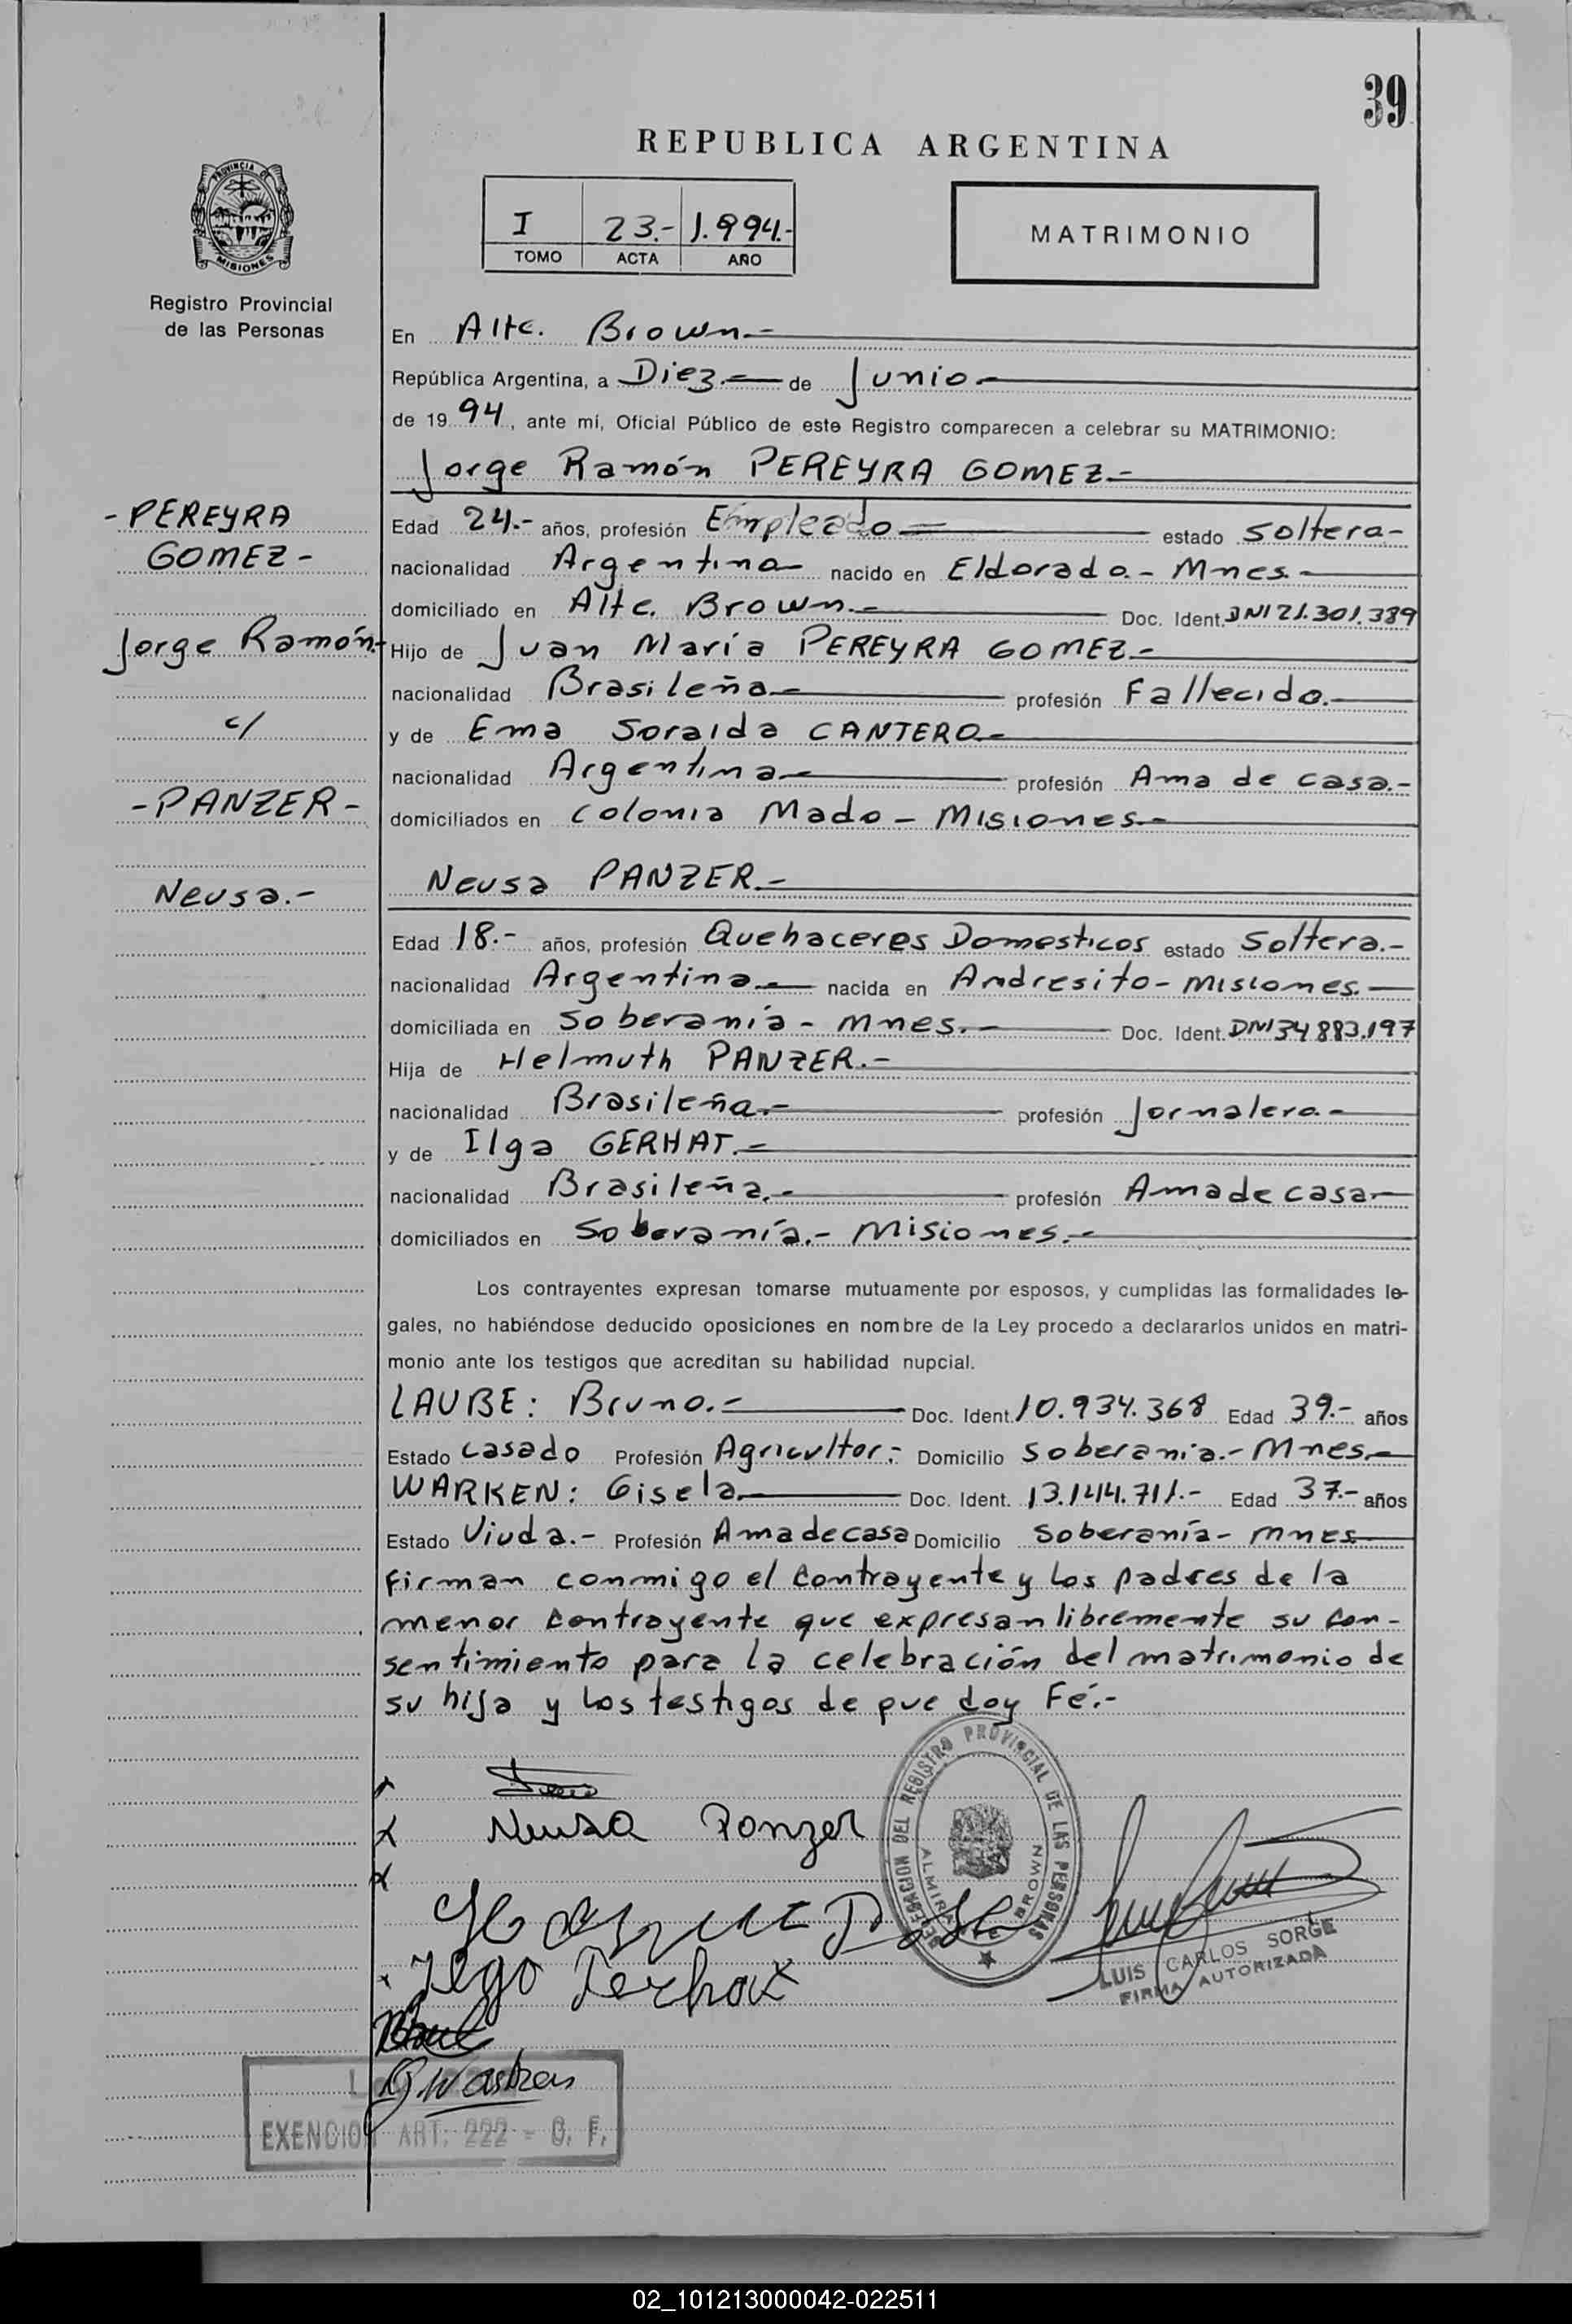 39
REPUBLICA ARGENTINA
I 23.- 1.994.-
TOMO ACTA AÑO
MATRIMONIO
PROVINCIA DE
MISIONES
Registro Provincial
de las Personas
En Alte. Brown.-
República Argentina, a Diez.- de Junio.-
de 1994, ante mí, Oficial Público de este Registro comparecen a celebrar su MATRIMONIO:
Jorge Ramón PEREYRA GOMEZ.-
-PEREYRA
GOMEZ-
Jorge Ramón.-
c/
-PANZER-
Neusa.-
Edad 24.- años, profesión Empleado= estado soltera-
nacionalidad Argentina- nacido en Eldorado.- Mnes.-
domiciliado en Alte. Brown.- Doc. Ident. DNI 21.301.389
Hijo de Juan María PEREYRA GOMEZ.-
nacionalidad Brasileña.- profesión Fallecido.-
y de Ema Soraida CANTERO.-
nacionalidad Argentina- profesión Ama de casa.-
domiciliados en Colonia Mado - Misiones.-
Neusa PANZER.-
Edad 18.- años, profesión Quehaceres Domesticos estado Soltera.-
nacionalidad Argentina.- nacida en Andresito - Misiones.-
domiciliada en Soberanía - Mnes.- Doc. Ident. DNI 34 883.197
Hija de Helmuth PANZER.-
nacionalidad Brasileña.- profesión Jornalero.-
y de Ilga GERHAT.-
nacionalidad Brasileña.- profesión Ama de casa-
domiciliados en Soberanía.- Misiones.-
Los contrayentes expresan tomarse mutuamente por esposos, y cumplidas las formalidades le-
gales, no habiéndose deducido oposiciones en nombre de la Ley procedo a declararlos unidos en matri-
monio ante los testigos que acreditan su habilidad nupcial.
LAUBE: Bruno.- Doc. Ident. 10.934.368 Edad 39.- años
Estado casado Profesión Agricultor.- Domicilio Soberania.- Mnes.-
WARKEN: Gisela.- Doc. Ident. 13.144.711.- Edad 37.- años
Estado Viuda.- Profesión Ama de casa Domicilio Soberanía - Mnes-
Firman conmigo el contrayente y los padres de la
menor contrayente que expresan libremente su con-
sentimiento para la celebración del matrimonio de
su hija y los testigos de que doy Fé.-
x
x Neusa Panzer
x
Ilga Gerhat
DELEGACION DEL REGISTRO PROVINCIAL DE LAS PERSONAS
ALMIRANTE BROWN
LUIS CARLOS SORGE
FIRMA AUTORIZADA
EXENCION ART. 222 - C. F.
02_101213000042-022511